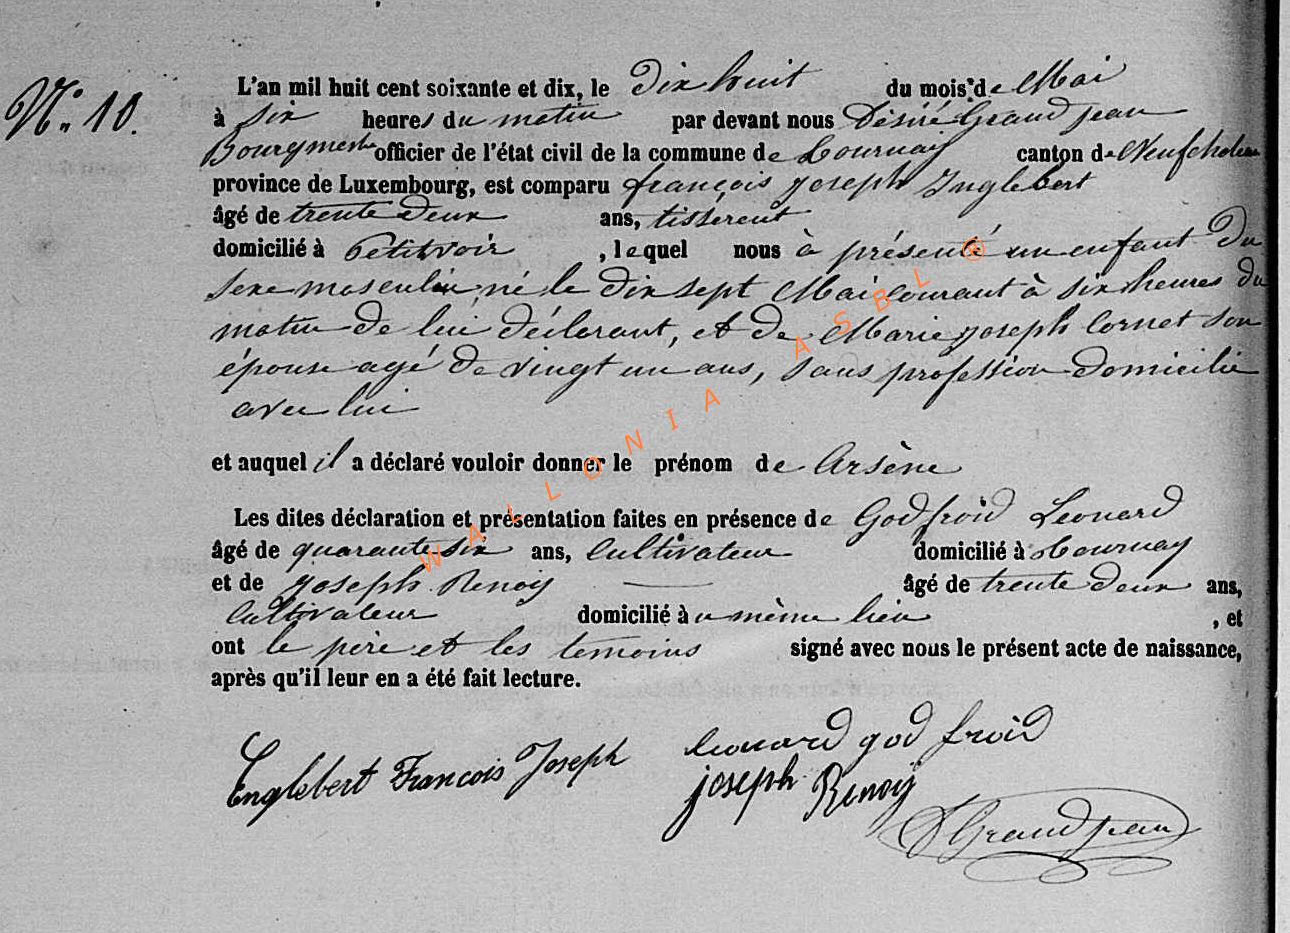 N.o 10.
L'an mil huit cent soixante et dix, le dix huit du mois de Mai
à six heures du matin par devant nous Désiré Grandjean
Bourgmestre officier de l'état civil de la commune de Tournay canton de Neufchateau
province de Luxembourg, est comparu françois joseph Inglebert
âgé de trente deux ans, tisserent
domicilié à Petitvoir, lequel nous à présenté un enfant du
sexe masculin né le dix sept Mai courant à six heures du
matin de lui déclarant, et de Marie joseph Cornet son
épouse agé de vingt un ans, sans profession domicilié
avec lui
et auquel il a déclaré vouloir donner le prénom de Arsène
Les dites déclaration et présentation faites en présence de Godfroid Leonard
âgé de quarante six ans, Cultivateur domicilié à Tournay
et de joseph Renoy âgé de trente deux ans,
Cultivateur domicilié àu même lieu, et
ont le père et les temoins signé avec nous le présent acte de naissance,
après qu'il leur en a été fait lecture.
Englebert François Joseph
leonard godfroid
joseph Renoy
D Grandjean
WALLONIA ASBL ®